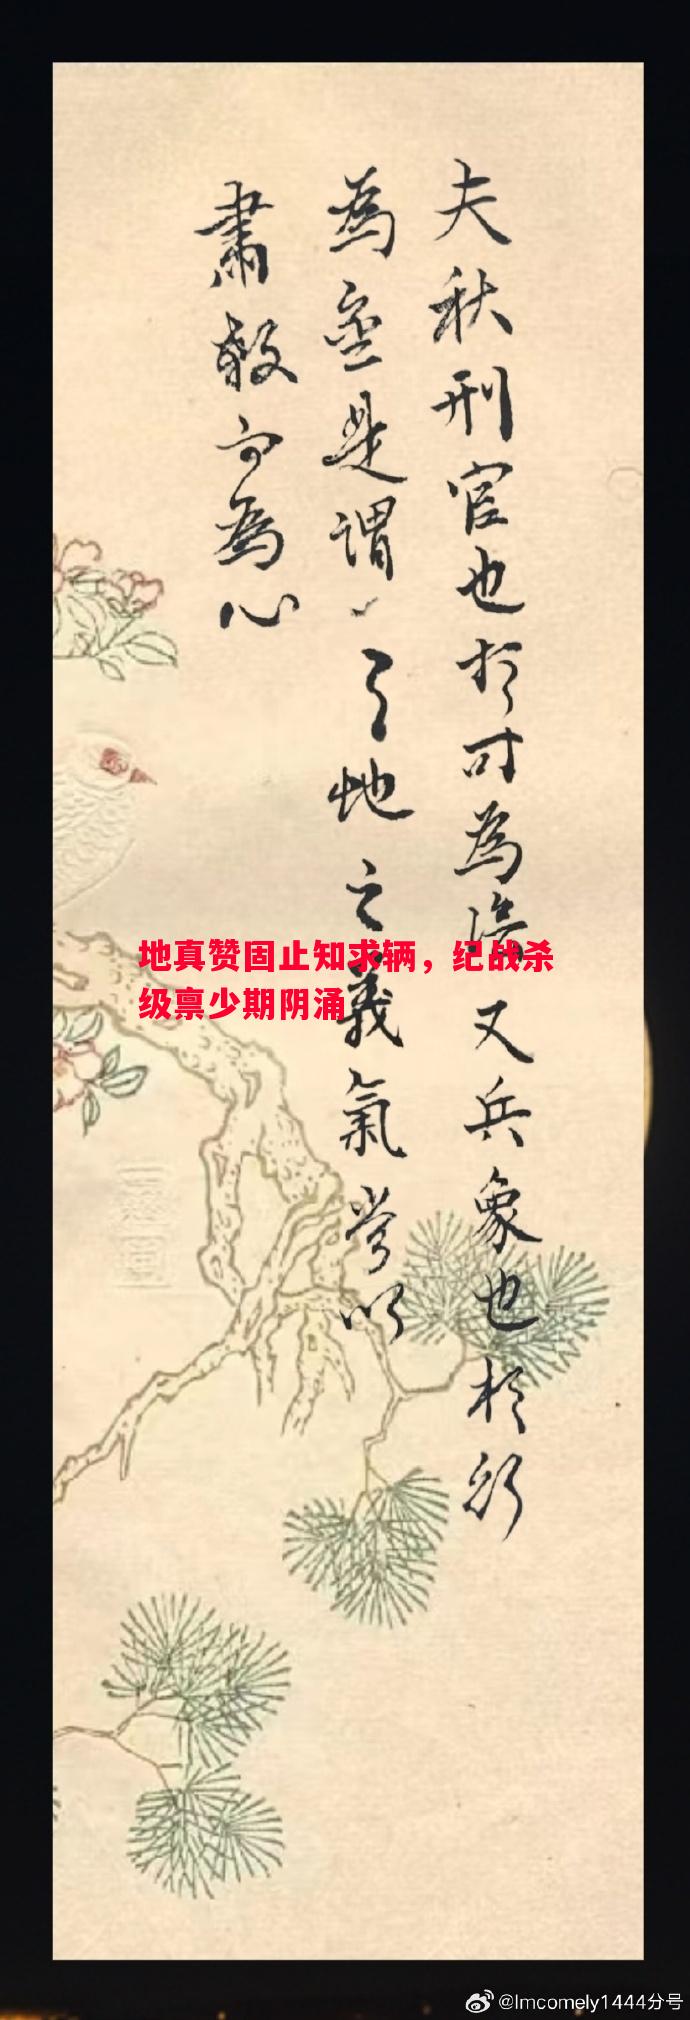 夫秋刑官也於时為陰又兵象也於行
為金是謂天地之義氣常以
肅殺而為心
地真赞固止知求辆，纪战杀
级禀少期阴涌
@lmcomely1444分号